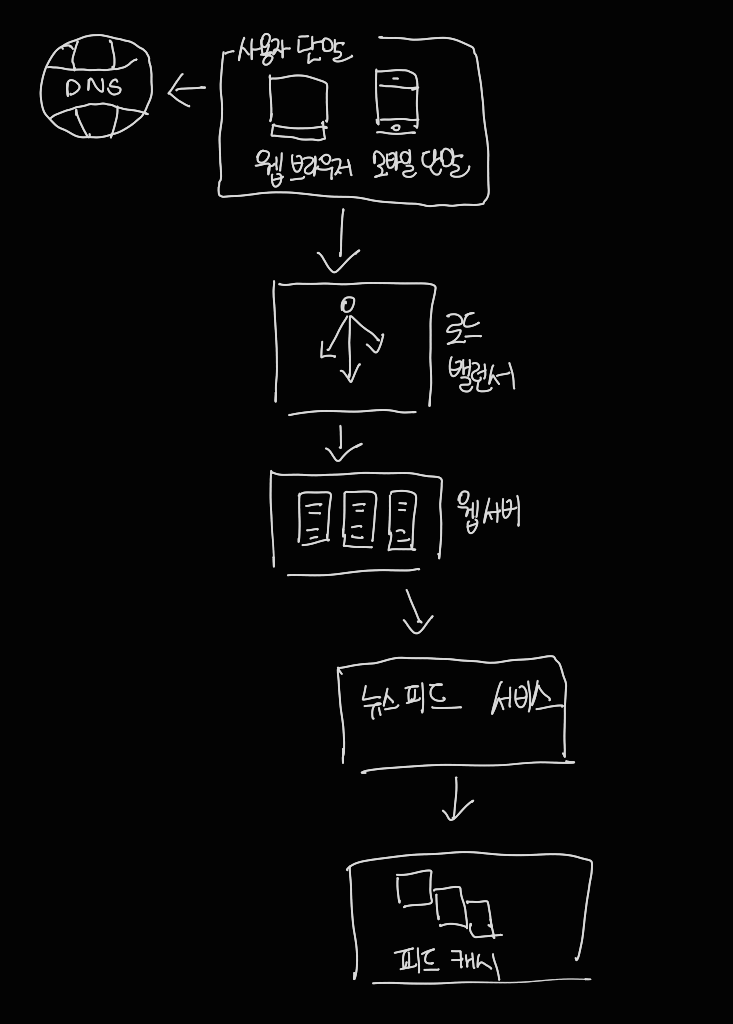 DNS
사용자 단말
웹 브라우저
모바일 단말
로드
밸런서
웹서버
뉴스피드 서비스
피드 캐시